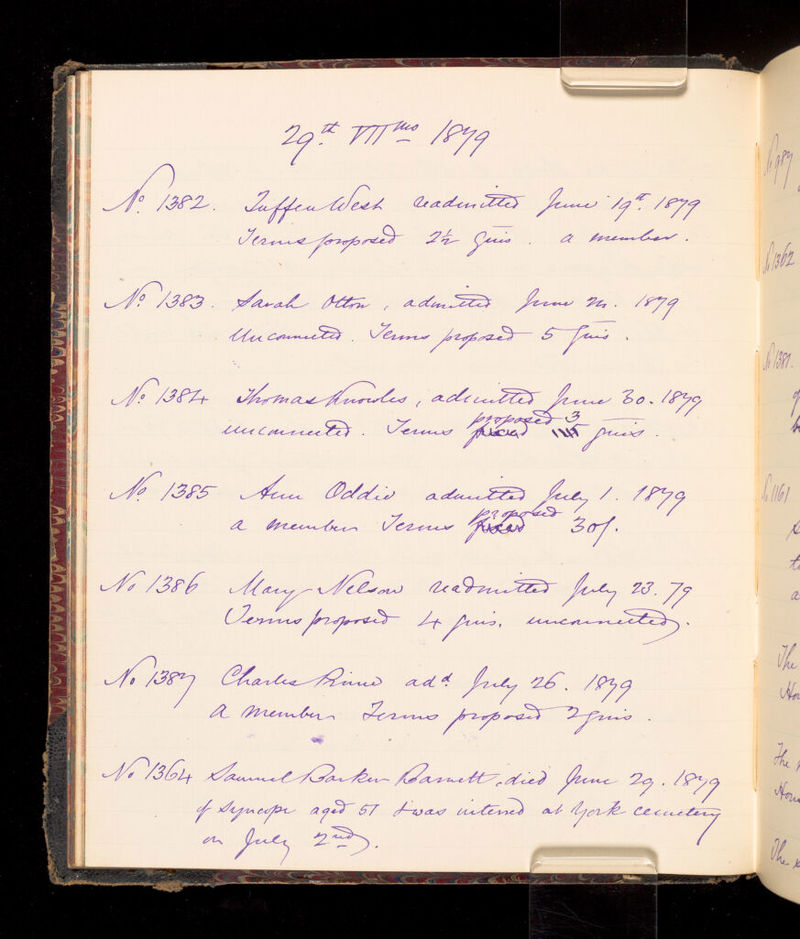 29th. VII mo 1879
No. 1382. Tuffen West readmitted June 19th. 1879
Terms proposed 2½ guis. a member.
No. 1383. Sarah Otton, admitted June 21. 1879
Unconnected. Terms proposed 5 guis.
No. 1384 Thomas Knowles, admitted June 30. 1879
proposed 3
unconnected. Terms fixed guis.
No. 1385 Ann Oddie admitted July 1. 1879
proposed
a member Terms fixed 30/.
No 1386 Mary Nelson readmitted July 23. 79
Terms proposed 4 guis. unconnected.
No 1387 Charles add. July 26. 1879
A member Terms proposed 2 guis.
No 1364 Samuel Barker Barnett, died June 29. 1879
of syncope aged 51 & was interred at York cemetery
on July 2nd.
No 987
No 1362
No 1381.
No 1161
The
Hou
The
Hous
The